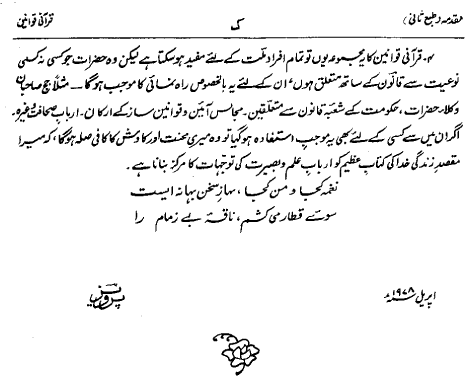 مقدمہ (طبع ثانی)
ک
قرآنی قوانین
۴۔ قرآنی قوانین کا یہ مجموعہ یوں تو تمام افرادِ ملت کے لئے مفید ہو سکتا ہے لیکن وہ حضرات جو کسی نہ کسی
نوعیت سے قانون کے ساتھ متعلق ہوں ان کے لئے یہ بالخصوص راہ نمائی کا موجب ہوگا۔ مثلاً جج صاحبان
وکلاء حضرات، حکومت کے شعبہ قانون سے متعلقین۔ مجالسِ آئین و قوانین ساز کے ارکان۔ اربابِ صحافت وغیرہ۔
اگر ان میں سے کسی کے لئے بھی یہ موجبِ استفادہ ہو گیا تو وہ میری محنت اور کاوش کا کافی صلہ ہوگا، کہ میرا
مقصدِ زندگی خدا کی کتابِ عظیم کو اربابِ علم و بصیرت کی توجہات کا مرکز بنانا ہے۔
نغمہ کجا و من کجا، سازِ سخن بہانہ ایست
سوئے قطار می کشم، ناقۂ بے زمام را
اپریل ۱۹۷۸ء
پرویز